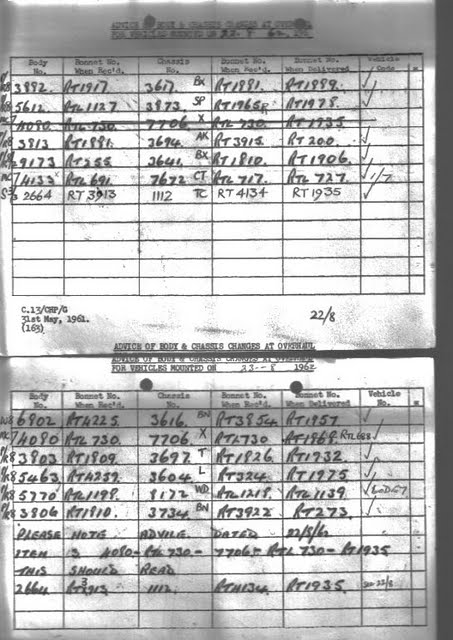 ADVICE OF BODY & CHASSIS CHANGES AT OVERHAUL
FOR VEHICLES MOUNTED ON 22. 8 62.
Body No. Bonnet No. When Rec'd. Chassis No. Bonnet No. When Rec'd. Bonnet No. When Delivered Vehicle Code
3892. RT1917. 3617. BX RT1891. RT1899.
5612 RTL1127 3873. SP RT1965 RT1978.
4090 RTL 730. 7706 X RTL 730. RT1935
3813 RT1881. 3694 AK RT3915. RT200.
9173 RT255. 3641. BX RT1810. RT1906.
4133 RTL 691 7672 CT RTL 717. RTL 727. 1/7
2664 RT3913 1112 TC RT4134 RT1935
C.13/CHP/G 22/8
31st May, 1961.
(163)
ADVICE OF BODY & CHASSIS CHANGES AT OVERHAUL
ADVICE OF BODY & CHASSIS CHANGES AT OVERHAUL
FOR VEHICLES MOUNTED ON 23-8 1962
Body No. Bonnet No. When Rec'd. Chassis No. Bonnet No. When Rec'd. Bonnet No. When Delivered Vehicle No.
6802 RT4225. 3616. BN RT3854 RT1957
4090 RTL 730. 7706. X RTL730 RTL688
3803 RT1809. 3697 T RT1826 RT1932
5463 RT4259. 3604. L RT324 RT1975
5770 RTL1198. 8172 WD RTL1218. RTL1139
3806 RT1810. 3734 BN RT3922 RT273.
PLEASE NOTE ADVICE DATED 22/8/62
ITEM 3 4090-RTL 730-7706-RTL 730-RT1935
THIS SHOULD READ
2664 RT3913 1112. RT4134. RT1935. SEE 22/8